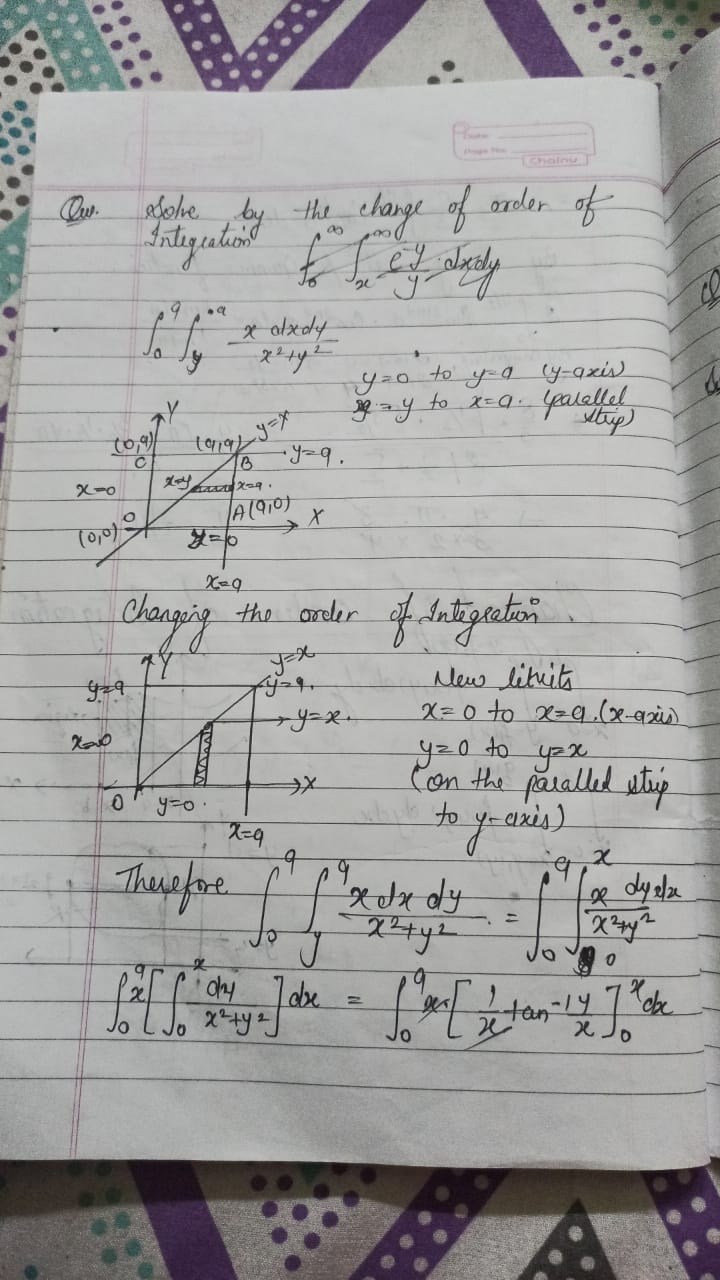 Qu. Solve by the change of order of
Integration ∫₀^∞ ∫ₓ^∞ e^-y/y dxdy
∫₀^a ∫_y^a x dxdy / x²+y²
y=0 to y=a (y-axis)
x=y to x=a. (parallel
strip)
Y
(0,a) C (a,a) B y=x
y=a.
x=0 x=y x=a.
(0,0) O A(a,0) X
y=0
x=a
Changing the order of Integration.
Y y=x
y=a y=a.
x=0 y=x.
O y=0. X
x=a
New limits
x=0 to x=a.(x-axis)
y=0 to y=x
(on the paralled strip
to y-axis)
Therefore ∫₀^a ∫_y^a x dx dy / x²+y² = ∫₀^a ∫₀^x x dydx / x²+y²
∫₀^a x[∫₀^x dy / x²+y²]dx = ∫₀^a x[1/x tan⁻¹ y/x]₀^x dx
Chalnu